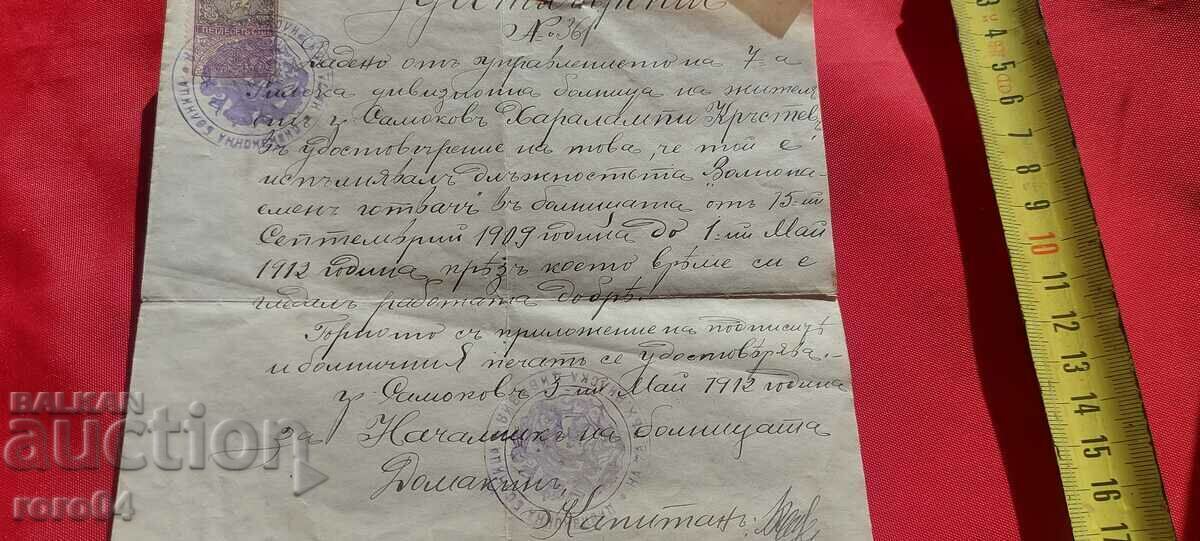 Удостоверение
№ 361
Дадено отъ управлението на 7-а
Рилска дивизионна болница на жителя
отъ г. Самоковъ Харалампи Кръстевъ
въ удостовѣрение на това, че той е
испълнявалъ длъжностьта Волнона-
еменъ готвачъ въ болницата отъ 15-ий
Септемврий 1909 година до 1-ий Май
1912 година, прѣзъ което врѣме си е
гледалъ работата добрѣ.
Горнето съ приложение на подписитѣ
и болничния печатъ се удостовѣрява.
гр. Самоковъ 3-ий Май 1912 година
За Началникъ на болницата
Домакинъ,
Капитанъ:
BALKAN
auction
roro64
3 4 5 6 7 8 9 10 11 12 13 14 15 16 17